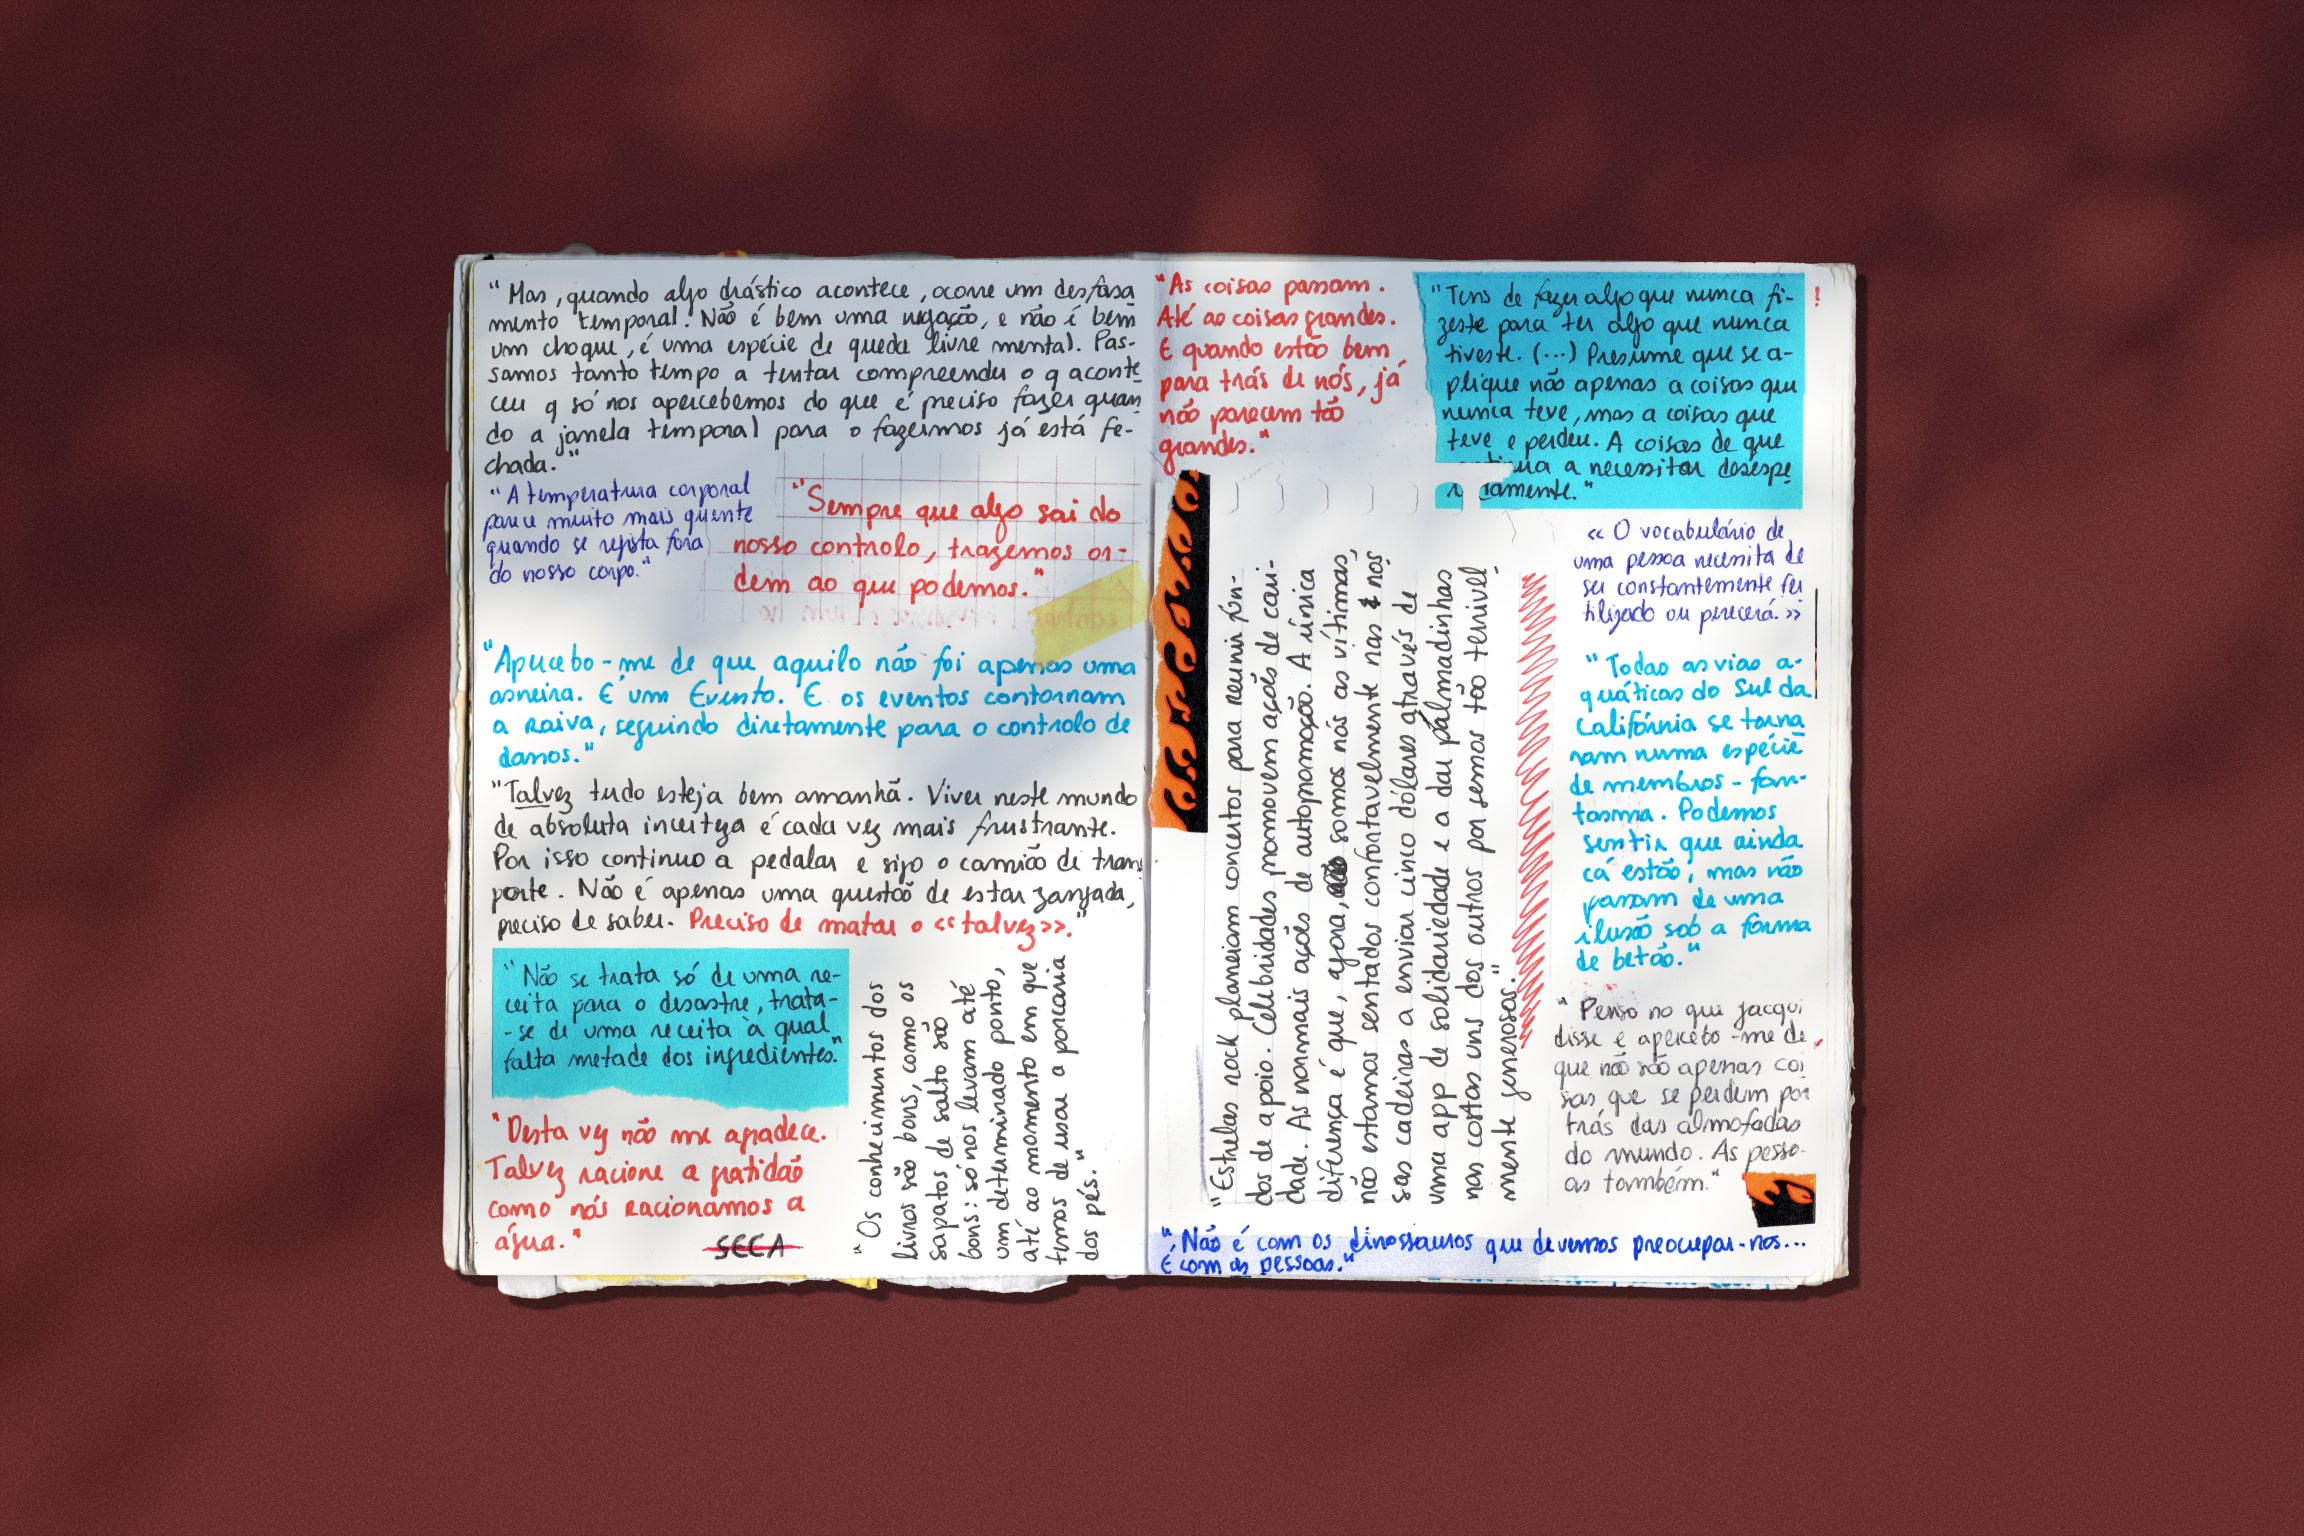 "Mas, quando algo drástico acontece, ocorre um desfasa
mento temporal. Não é bem uma negação, e não é bem
um choque, é uma espécie de queda livre mental. Pas-
samos tanto tempo a tentar compreender o q aconte
ceu q só nos apercebemos do que é preciso fazer quan
do a janela temporal para o fazermos já está fe-
chada."
"A temperatura corporal
parece muito mais quente
quando se regista fora
do nosso corpo."
"Sempre que algo sai do
nosso controlo, trazemos or-
dem ao que podemos."
"Apercebo-me de que aquilo não foi apenas uma
asneira. É um Evento. E os eventos contornam
a raiva, seguindo diretamente para o controlo de
danos."
"Talvez tudo esteja bem amanhã. Viver neste mundo
de absoluta incerteza é cada vez mais frustrante.
Por isso continuo a pedalar e sigo o camião de trans
porte. Não é apenas uma questão de estar zangada,
preciso de saber. Preciso de matar o <<talvez>>."
"Não se trata só de uma re-
ceita para o desastre, trata-
-se de uma receita à qual
falta metade dos ingredientes."
"Desta vez não me agradece.
Talvez racione a gratidão
como nós racionamos a
água."
SECA
"Os conhecimentos dos
livros são bons, como os
sapatos de salto são
bons: só nos levam até
um determinado ponto,
até ao momento em que
temos de usar a porcaria
dos pés."
"As coisas passam.
Até as coisas grandes.
E quando estão bem
para trás de nós, já
não parecem tão
grandes."
"Tens de fazer algo que nunca fi-
zeste para ter algo que nunca
tiveste. (...) Presume que se a-
plique não apenas a coisas que
nunca teve, mas a coisas que
teve e perdeu. A coisas de que
a necessitar desespe
amente."
!
"Estrelas rock planeiam concertos para reunir fun-
dos de apoio. Celebridades promovem ações de cari-
dade. As normais ações de autopromoção. A única
diferença é que, agora, somos nós as vítimas,
não estamos sentados confortavelmente nas & nos
sas cadeiras a enviar cinco dólares através de
uma app de solidariedade e a dar palmadinhas
nas costas uns dos outros por sermos tão terrivel
mente generosos."
<< O vocabulário de
uma pessoa necessita de
ser constantemente fer
tilizado ou perecerá.>>
"Todas as vias a-
quáticas do Sul da
Califórnia se torna
ram numa espécie
de membros-fan-
tasma. Podemos
sentir que ainda
cá estão, mas não
passam de uma
ilusão sob a forma
de betão."
"Penso no que Jacqui
disse e apercebo-me de
que não são apenas coi
sas que se perdem por
trás das almofadas
do mundo. As pesso-
as também."
"Não é com os dinossauros que devemos preocupar-nos...
É com as pessoas."